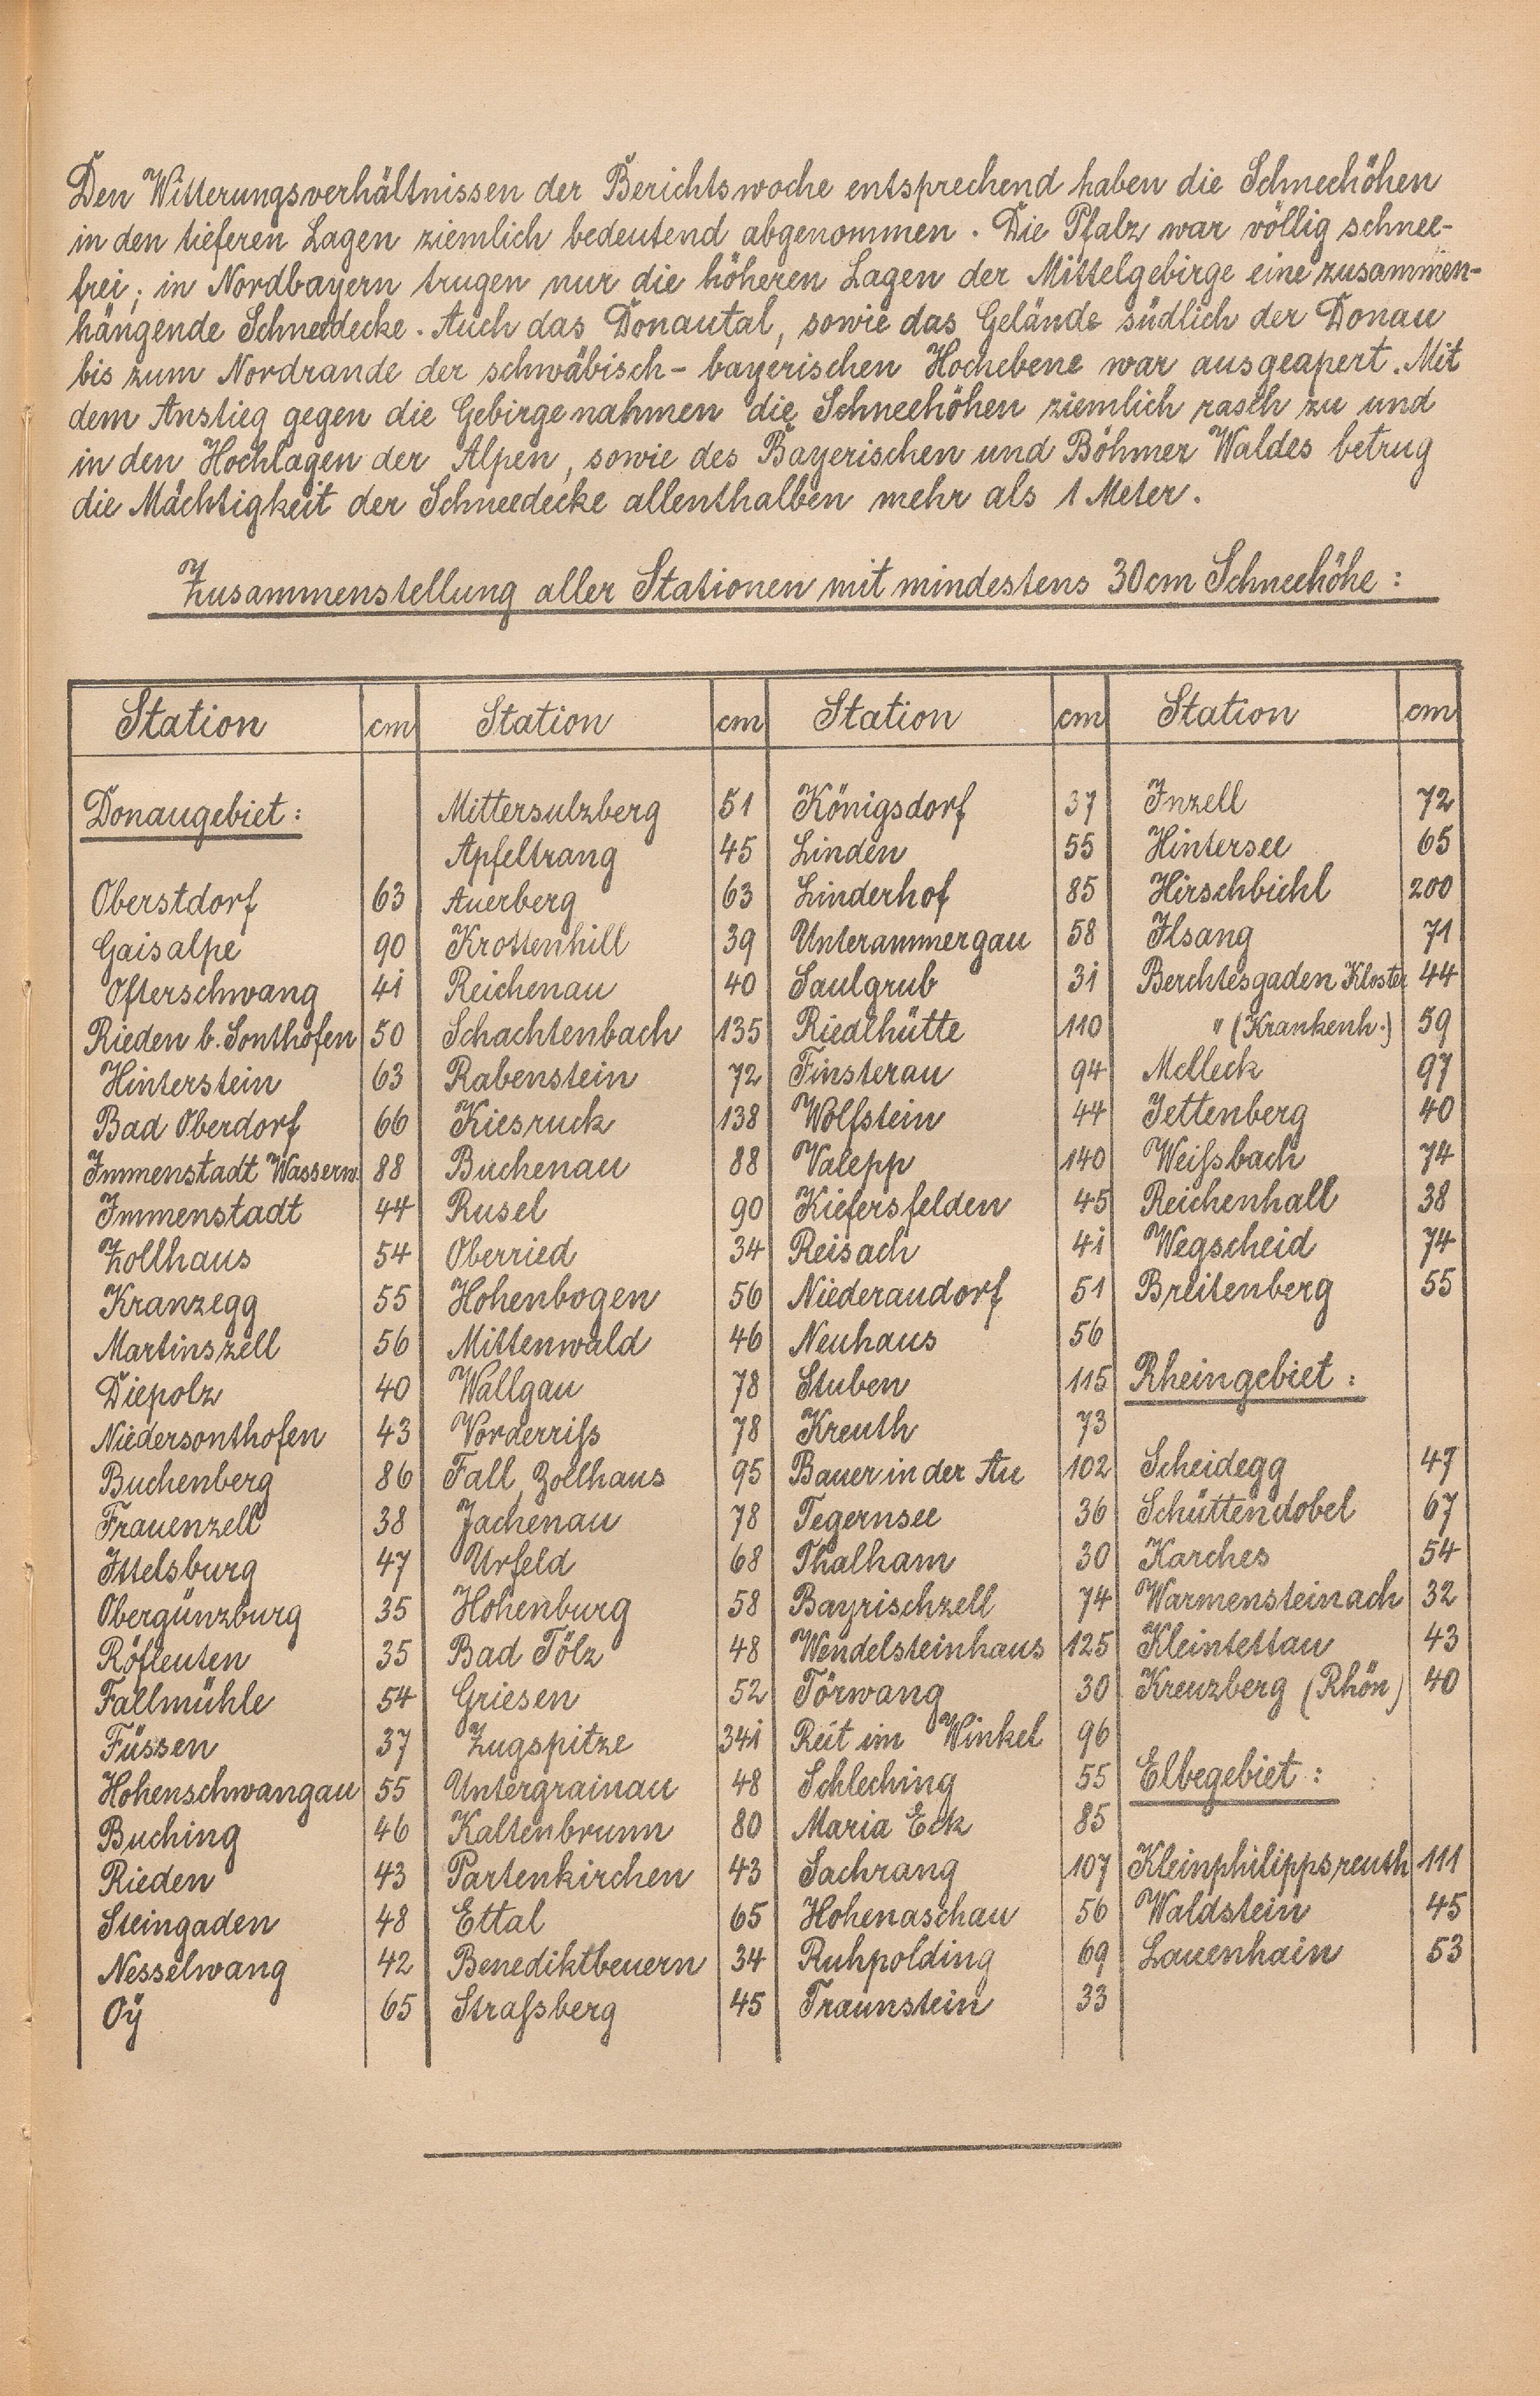 Den Witterungsverhältnissen der Berichtswoche entsprechend haben die Schneehöhen
in den tieferen Lagen ziemlich bedeutend abgenommen. Die Pfalz war völlig schnee-
frei; in Nordbayern trugen nur die höheren Lagen der Mittelgebirge eine zusammen-
hängende Schneedecke. Auch das Donautal, sowie das Gelände südlich der Donau
bis zum Nordrande der schwäbisch-bayerischen Hochebene war ausgeapert. Mit
dem Anstieg gegen die Gebirge nahmen die Schneehöhen ziemlich rasch zu und
in den Hochlagen der Alpen, sowie des Bayerischen und Böhmer Waldes betrug
die Mächtigkeit der Schneedecke allenthalben mehr als 1 Meter.
Zusammenstellung aller Stationen mit mindestens 30 cm Schneehöhe:
Station cm Station cm Station cm Station cm
Donaugebiet: Mittersulzberg 51 Königsdorf 37 Inzell 72
Apfeltrang 45 Linden 55 Hintersee 65
Oberstdorf 63 Auerberg 63 Linderhof 85 Hirschbichl 200
Gaisalpe 90 Krottenhill 39 Unterammergau 58 Ilsang 71
Ofterschwang 41 Reichenau 40 Saulgrub 31 Berchtesgaden Kloster 44
Rieden b. Sonthofen 50 Schachtenbach 135 Riedlhütte 110 " (Krankenh.) 59
Hinterstein 63 Rabenstein 72 Finsterau 94 Melleck 97
Bad Oberdorf 66 Kiesruck 138 Wolfstein 44 Jettenberg 40
Immenstadt Wasserw. 88 Buchenau 88 Valepp 140 Weißbach 74
Immenstadt 44 Rusel 90 Kiefersfelden 45 Reichenhall 38
Zollhaus 54 Oberried 34 Reisach 41 Wegscheid 74
Kranzegg 55 Hohenbogen 56 Niederaudorf 51 Breitenberg 55
Martinszell 56 Mittenwald 46 Neuhaus 56
Diepolz 40 Wallgau 78 Stuben 115 Rheingebiet:
Niedersonthofen 43 Vorderriß 78 Kreuth 73
Buchenberg 86 Fall, Zollhaus 95 Bauer in der Au 102 Scheidegg 47
Frauenzell 38 Jachenau 78 Tegernsee 36 Schüttendobel 67
Ittelsburg 47 Urfeld 68 Thalham 30 Karches 54
Obergünzburg 35 Hohenburg 58 Bayrischzell 74 Warmensteinach 32
Röfleuten 35 Bad Tölz 48 Wendelsteinhaus 125 Kleintettau 43
Fallmühle 54 Griesen 52 Törwang 30 Kreuzberg (Rhön) 40
Füssen 37 Zugspitze 341 Reit im Winkel 96
Hohenschwangau 55 Untergrainau 48 Schleching 55 Elbegebiet:
Buching 46 Kaltenbrunn 80 Maria Eck 85
Rieden 43 Partenkirchen 43 Sachrang 107 Kleinphilippsreuth 111
Steingaden 48 Ettal 65 Hohenaschau 56 Waldstein 45
Nesselwang 42 Benediktbeuern 34 Ruhpolding 69 Lauenhain 53
Oÿ 65 Straßberg 45 Traunstein 33